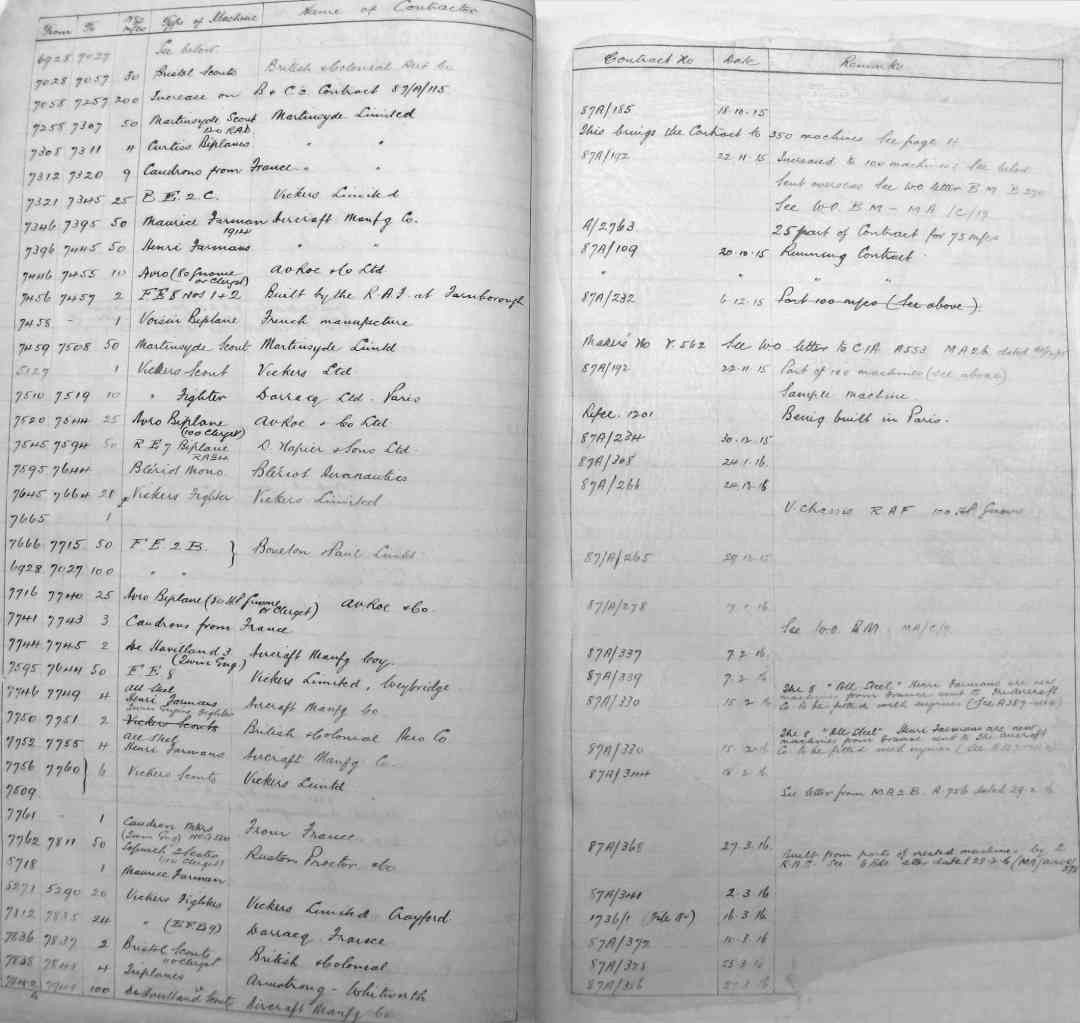 From To No of m/cs Type of Machine Name of Contractor
6928 7027 See below
7028 7057 30 Bristol Scouts British & Colonial Aero Co
7058 7257 200 Increase on B & C's Contract 87/A/115
7258 7307 50 Martinsyde Scout Martinsyde Limited
120 RAF
7308 7311 4 Curtiss Biplanes " "
7312 7320 9 Caudrons from France " "
7321 7345 25 B.E.2.C. Vickers Limited
7346 7395 50 Maurice Farman Aircraft Manfg Co.
1914
7396 7445 50 Henri Farmans " "
7446 7455 10 Avro (80 Gnome A.V. Roe & Co Ltd
or Clerget)
7456 7457 2 F E 8 Nos 1 + 2 Built by the R.A.F. at Farnborough
7458 - 1 Voisin Biplane French manufacture
7459 7508 50 Martinsyde Scout Martinsyde Limtd
5127 1 Vickers Scout Vickers Ltd
7510 7519 10 " Fighter Darracq Ltd. Paris
7520 7544 25 Avro Biplane A.V. Roe & Co Ltd
(100 Clerget)
7545 7594 50 R E 7 Biplane D. Napier & Sons Ltd.
7595 7644 Blériot Mono. Blériot Aeronautics
7645 7664 20 Vickers Fighter Vickers Limited
7665 1
7666 7715 50 F E 2 B. } Boulton & Paul Limtd
6928 7027 100 " "
7716 7740 25 Avro Biplane (80 HP Gnome A.V. Roe & Co.
or Clerget)
7741 7743 3 Caudrons from France
7744 7745 2 De Havilland 3 Aircraft Manfg Coy.
(Twin Eng.)
7595 7644 50 F E 8 Vickers Limited, Weybridge
All Steel
7746 7749 4 Henri Farmans Aircraft Manfg Co
Twin Engine Fighter
7750 7751 2 Vickers Scouts British & Colonial Aero Co
All Steel
7752 7755 4 Henri Farmans Aircraft Manfg Co.
7756 7760 } 6 Vickers Scouts Vickers Limtd
7509
7761 - 1 Caudron From France
(Twin Eng)
7762 7811 50 Sopwith 2 Seater Ruston Proctor & Co
(110 Clerget)
5718 1 Maurice Farman
5271 5290 20 Vickers Fighters Vickers Limited Crayford
7812 7835 24 " (E.F.B.9) Darracq. France
7836 7837 2 Bristol Scouts British & Colonial
110 Clerget
7838 7841 4 Triplanes Armstrong - Whitworth
100 De Havilland Scouts Aircraft Manfg Co
Contract No Date Remarks
87A/185 18.10.15
This brings the Contract to 350 machines See page 14
87A/192 22.11.15 Increased to 100 machines See below
Sent overseas See W.O. letter B.M.
See W.O. B M - M A /C/19
A/2763 25 part of Contract for 75 m/cs
87A/109 20.10.15 Running Contract.
" " " "
87A/232 6.12.15 Part 100 m/cs (See above).
Maker's No V.562 See W.O letter to C.I.A. A553 M A 2 b. dated
87A/192 22.11.15 Part of 100 machines (See above)
Sample machine.
Refce. 1201 Being built in Paris.
87A/234 30.12.15
87A/308 24.1.16.
87A/266
V. Chassis R A F 100 HP Gnome
87/A/265 29.12.15
87/A/278 7.1.16
See W.O. B M. MA/C/19
87A/337 7.2.16.
87A/339 7.2.16
The 8 "All Steel" Henri Farmans are new
machines from France sent to the Aircraft
87A/330 15.2.16 Co to be fitted with engines
The 8 "All Steel" Henri Farmans are new
machines from France sent to the Aircraft
87A/330 15.2.16 Co to be fitted with engines
87A/344 18.2.16
See letter from M.A.2.B. A.756 dated 29.2.16
87A/365 27.3.16. Built from parts of wrecked machines by 2
R.A.P. See letter dated
87A/341 2.3.16
1736/1 16.3.16
87A/372
87A/378 25.3.16
87A/386